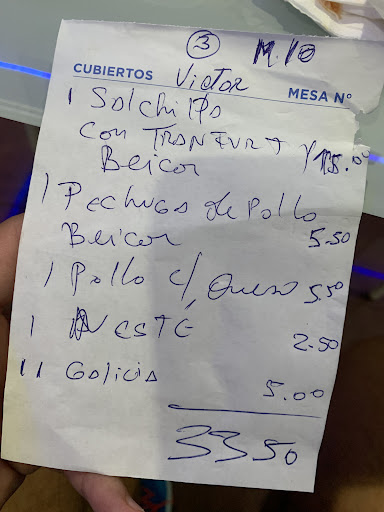 3 M.10
CUBIERTOS Victor MESA Nº
1 Solchihps
con TRANFURT Y
Beicor 15.00
1 Pechugs de pollo
Beicor 5.50
1 Pollo c/ Queso 5.50
1 NESTE 2.50
11 Golicis 5.00
33 50